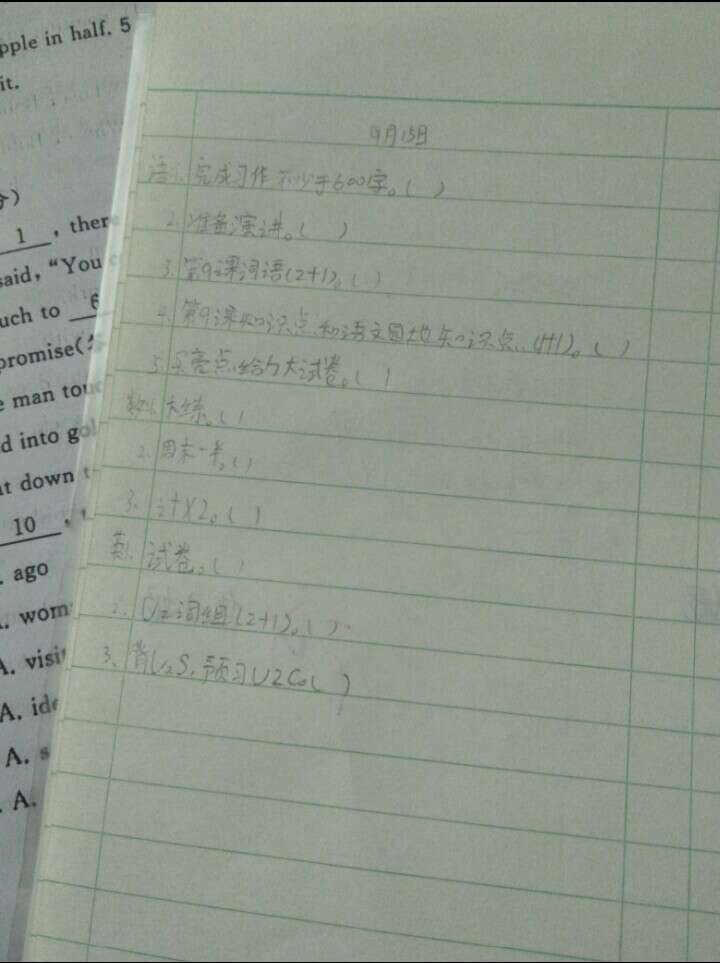 pple in half. 5
it.
1, there
said, "You
uch to 6
promise(
e man touc
d into gol
at down t
10,
. ago
. wom
A. visi
A. ide
A. s
. A.
4月15日
语1.完成习作 不少于600字。( )
2.准备演讲。( )
3.第9课词语(2+1)。( )
4.第9课知识点和语文园地知识点 (1+1)。( )
5.买亮点给力大试卷。( )
数1.大练。( )
2.周末一卷。( )
3.计×2。( )
英1.试卷。( )
2.U2词组(2+1)。( )
3.背U2S,预习U2C。( )